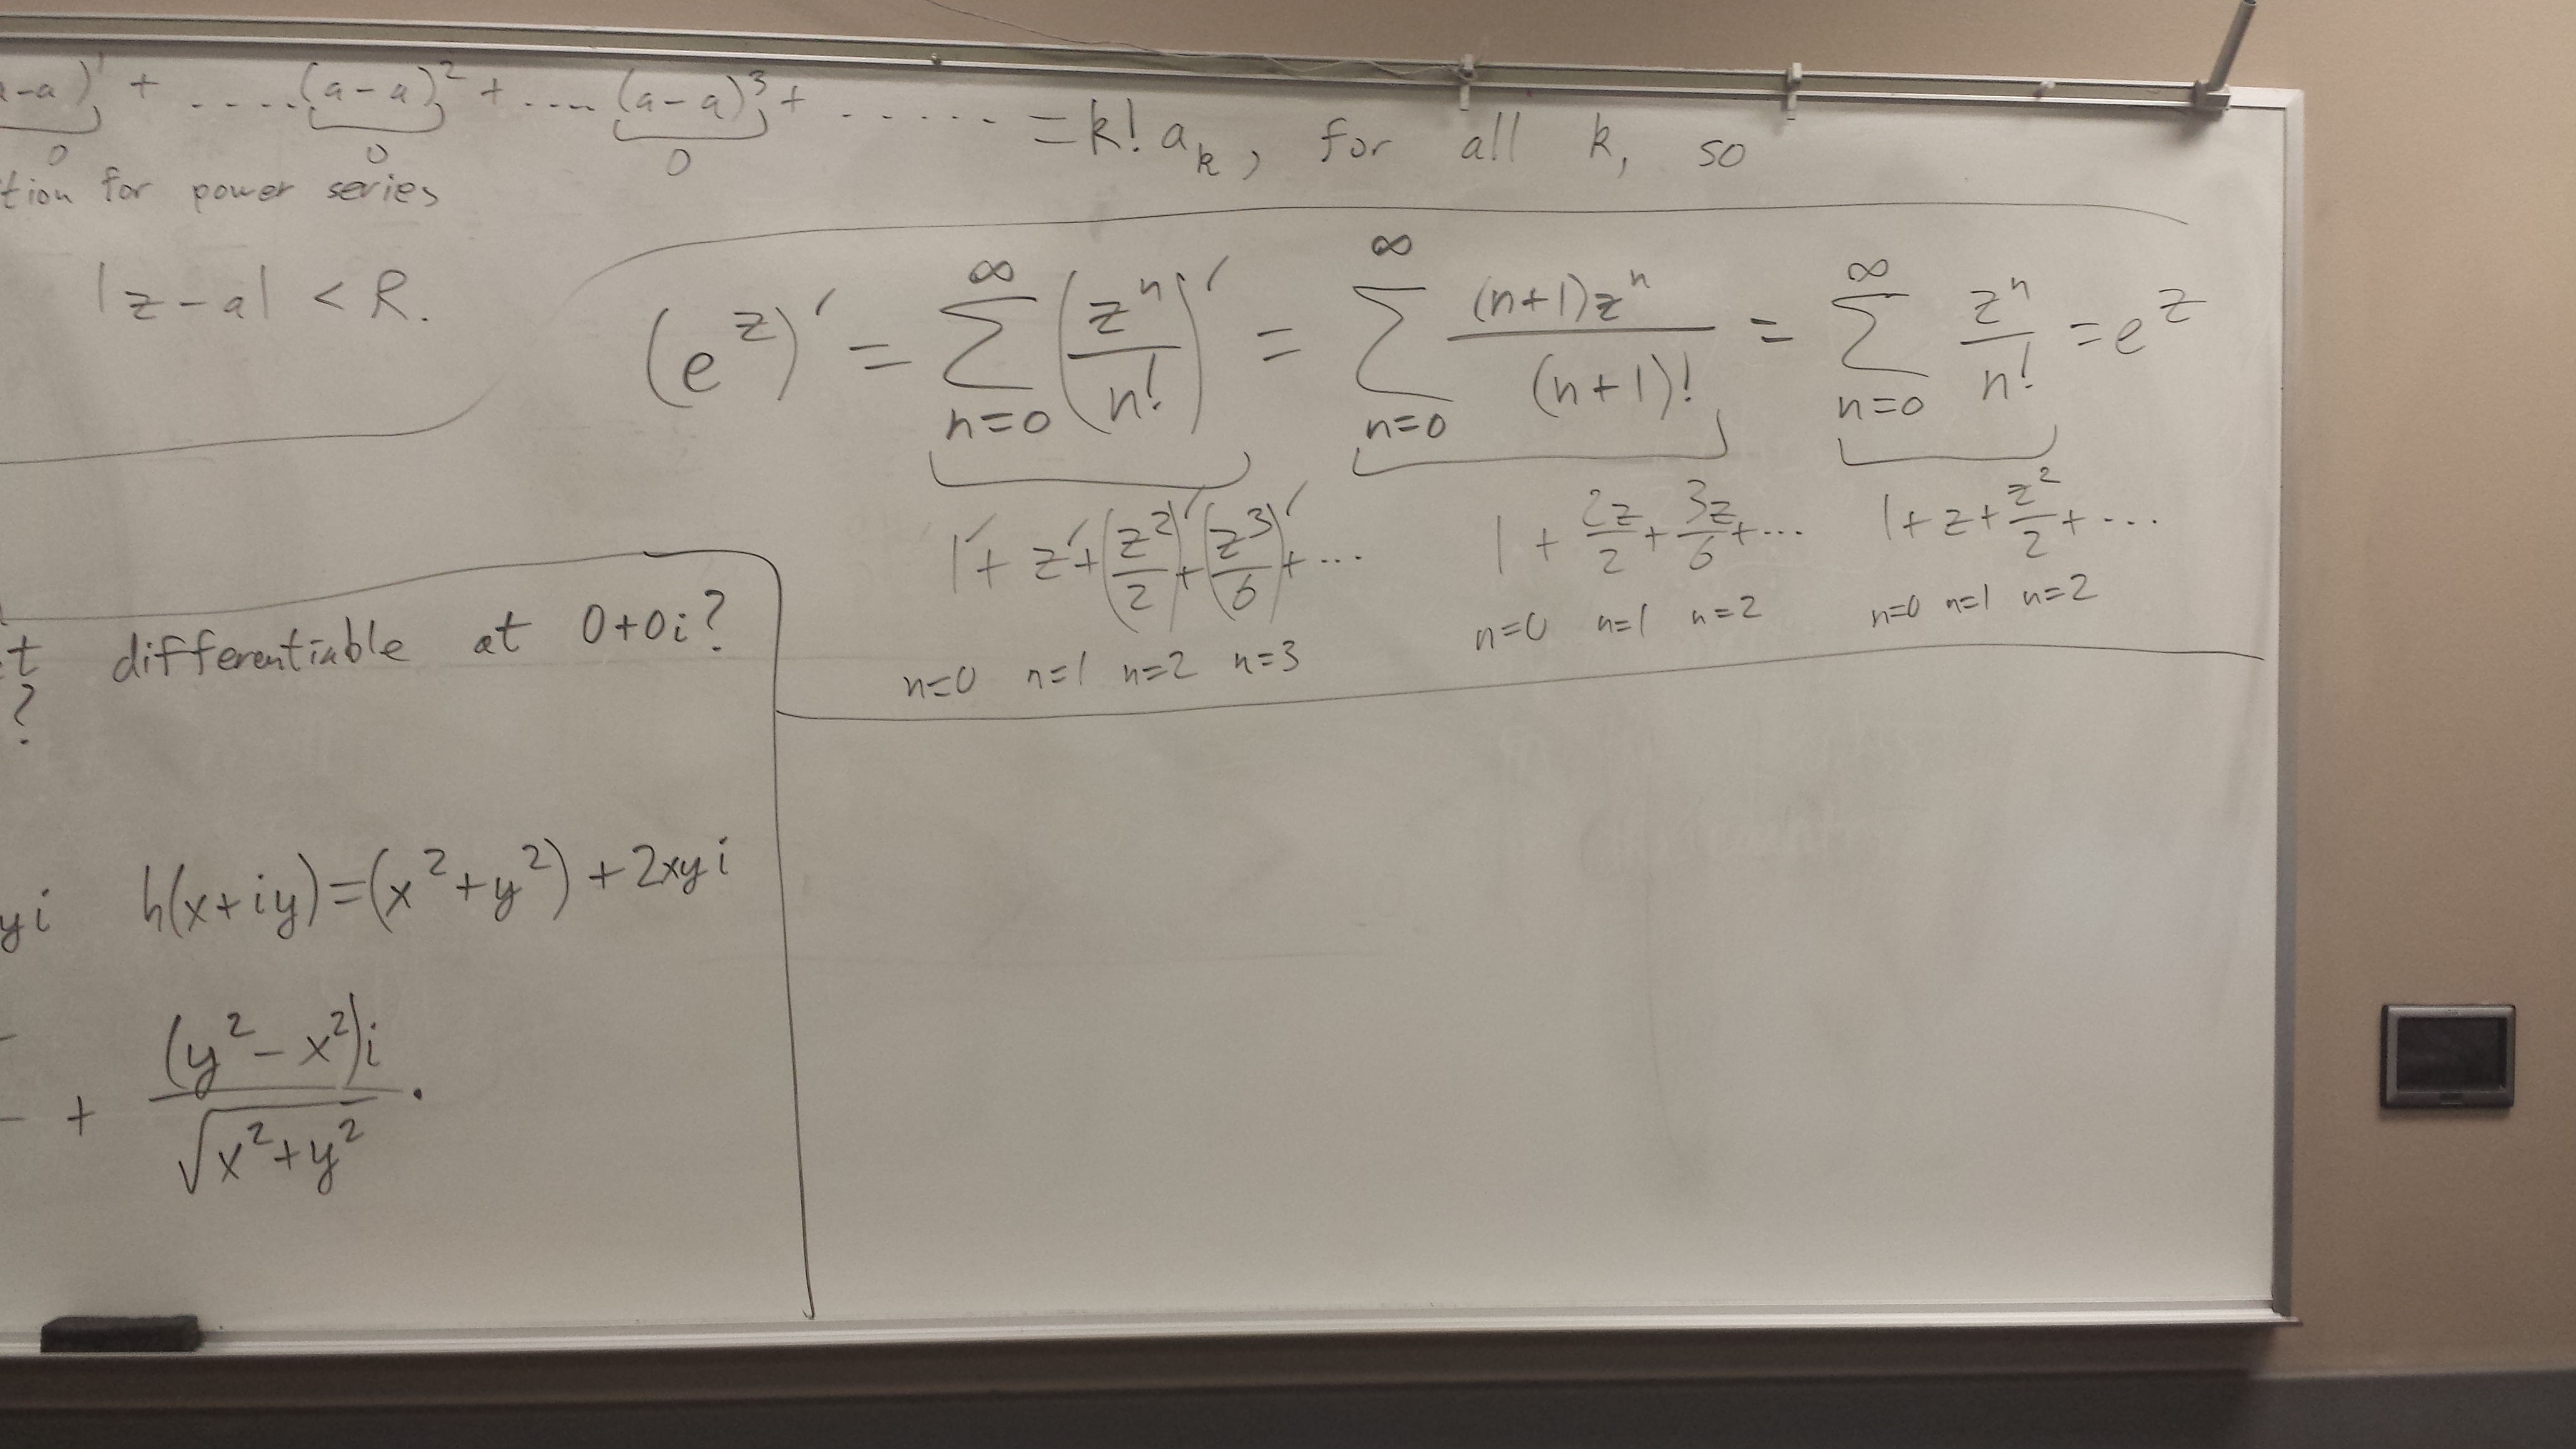 -a)¹ + ....(a-a)² + ....(a-a)³ + ...... = k! aₖ, for all k, so
0 0 0
tion for power series
|z-a| < R.
(e^z)′ = ∑_{n=0}^∞ (z^n/n!)′ = ∑_{n=0}^∞ (n+1)z^n/(n+1)! = ∑_{n=0}^∞ z^n/n! = e^z
1′ + z′ + (z²/2)′ + (z³/6)′ + ...
n=0 n=1 n=2 n=3
1 + 2z/2 + 3z/6 + ...
n=0 n=1 n=2
1 + z + z²/2 + ...
n=0 n=1 n=2
t differentiable at 0+0i?
?
yi h(x+iy)=(x²+y²)+2xyi
+ (y²-x²)i/√(x²+y²) .